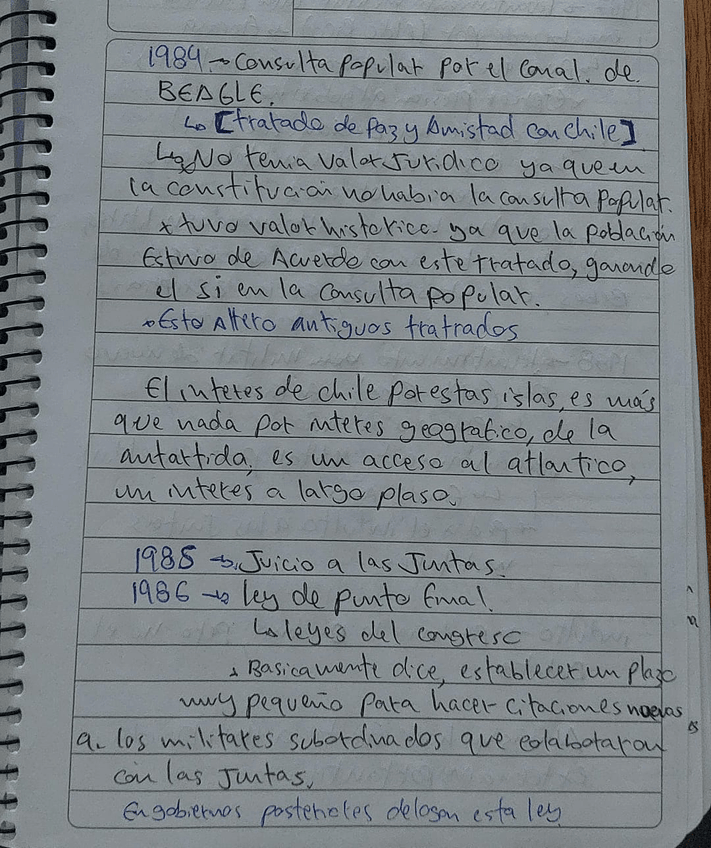 1984 → Consulta popular por el Canal. de
BEAGLE.
↳ [tratado de Paz y Amistad con chile]
↳ No tenia valor Juridico ya que en
la constitución no habia la consulta popular.
x tuvo valor historico. ya que la población
Estuvo de Acuerdo con este tratado, ganando
el si en la consulta popular.
• Esto Altero antiguos tratrados
El interes de chile por estas islas, es más
que nada por interes geografico, de la
antartida, es un acceso al atlantico,
un interes a largo plaso.
1985 → Juicio a las Juntas.
1986 → ley de punto final.
↳ leyes del congreso
Basicamente dice, establecer un plazo
muy pequeño para hacer citaciones nuevas
a los militares subordinados que colaboraron
con las Juntas.
En gobiernos posteriores derogan esta ley